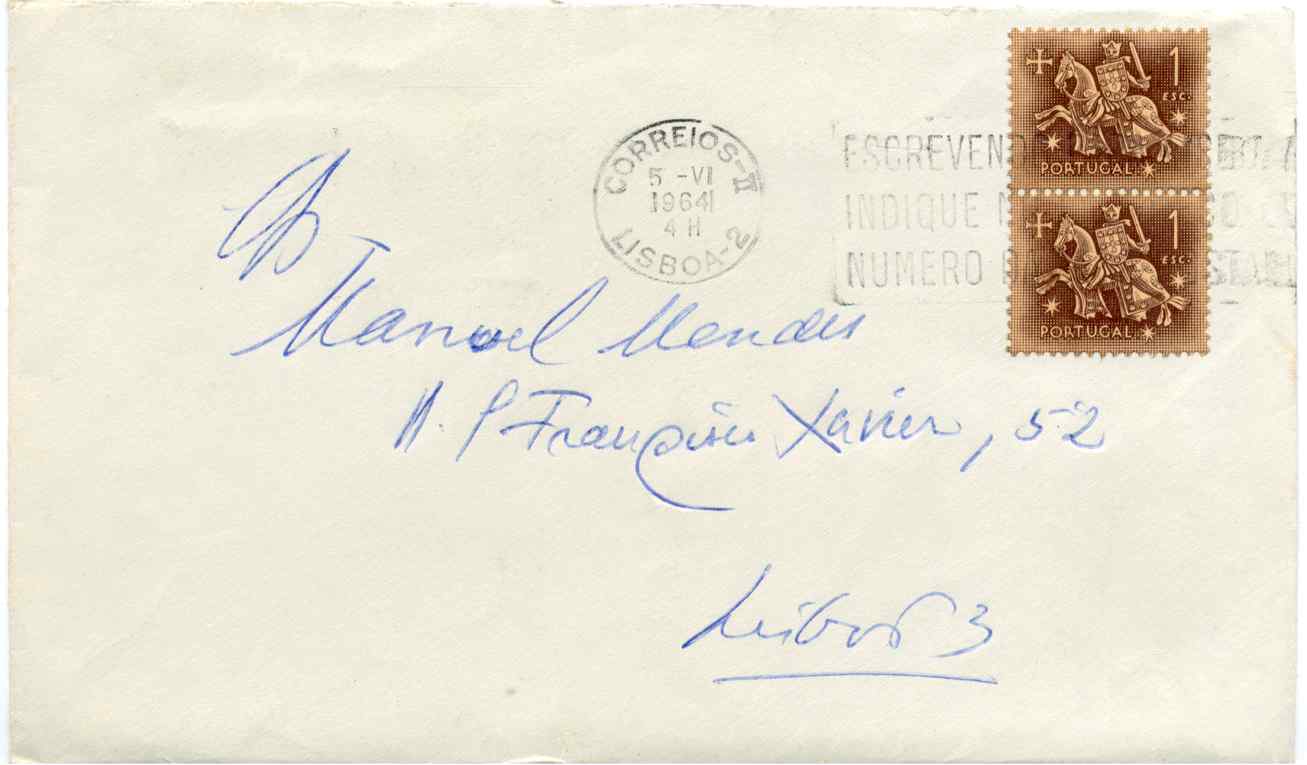 CORREIOS-II
5 -VI
1964
4 H
LISBOA-2
ESCREVEN
INDIQUE
NUMERO
1
ESC.
PORTUGAL
1
ESC.
PORTUGAL
Manuel Mendes
R. S Francisco Xavier, 52
Lisboa 3